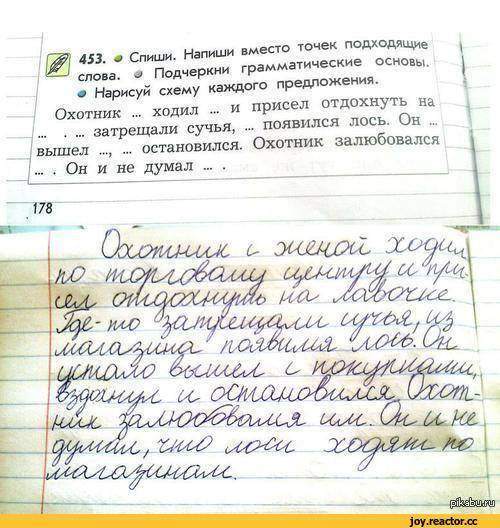 453. Спиши. Напиши вместо точек подходящие
слова. Подчеркни грамматические основы.
Нарисуй схему каждого предложения.
Охотник ... ходил ... и присел отдохнуть на
... . ... затрещали сучья, ... появился лось. Он ...
вышел ..., ... остановился. Охотник залюбовался
... . Он и не думал ... .
178
Охотник с женой ходил
по торговому центру и при-
сел отдохнуть на лавочке.
Где-то затрещали сучья, из
магазина появился лось. Он
устало вышел с покупками,
вздохнул и остановился. Охот-
ник залюбовался им. Он и не
думал, что лоси ходят по
магазинам.
pikabu.ru
joy.reactor.cc